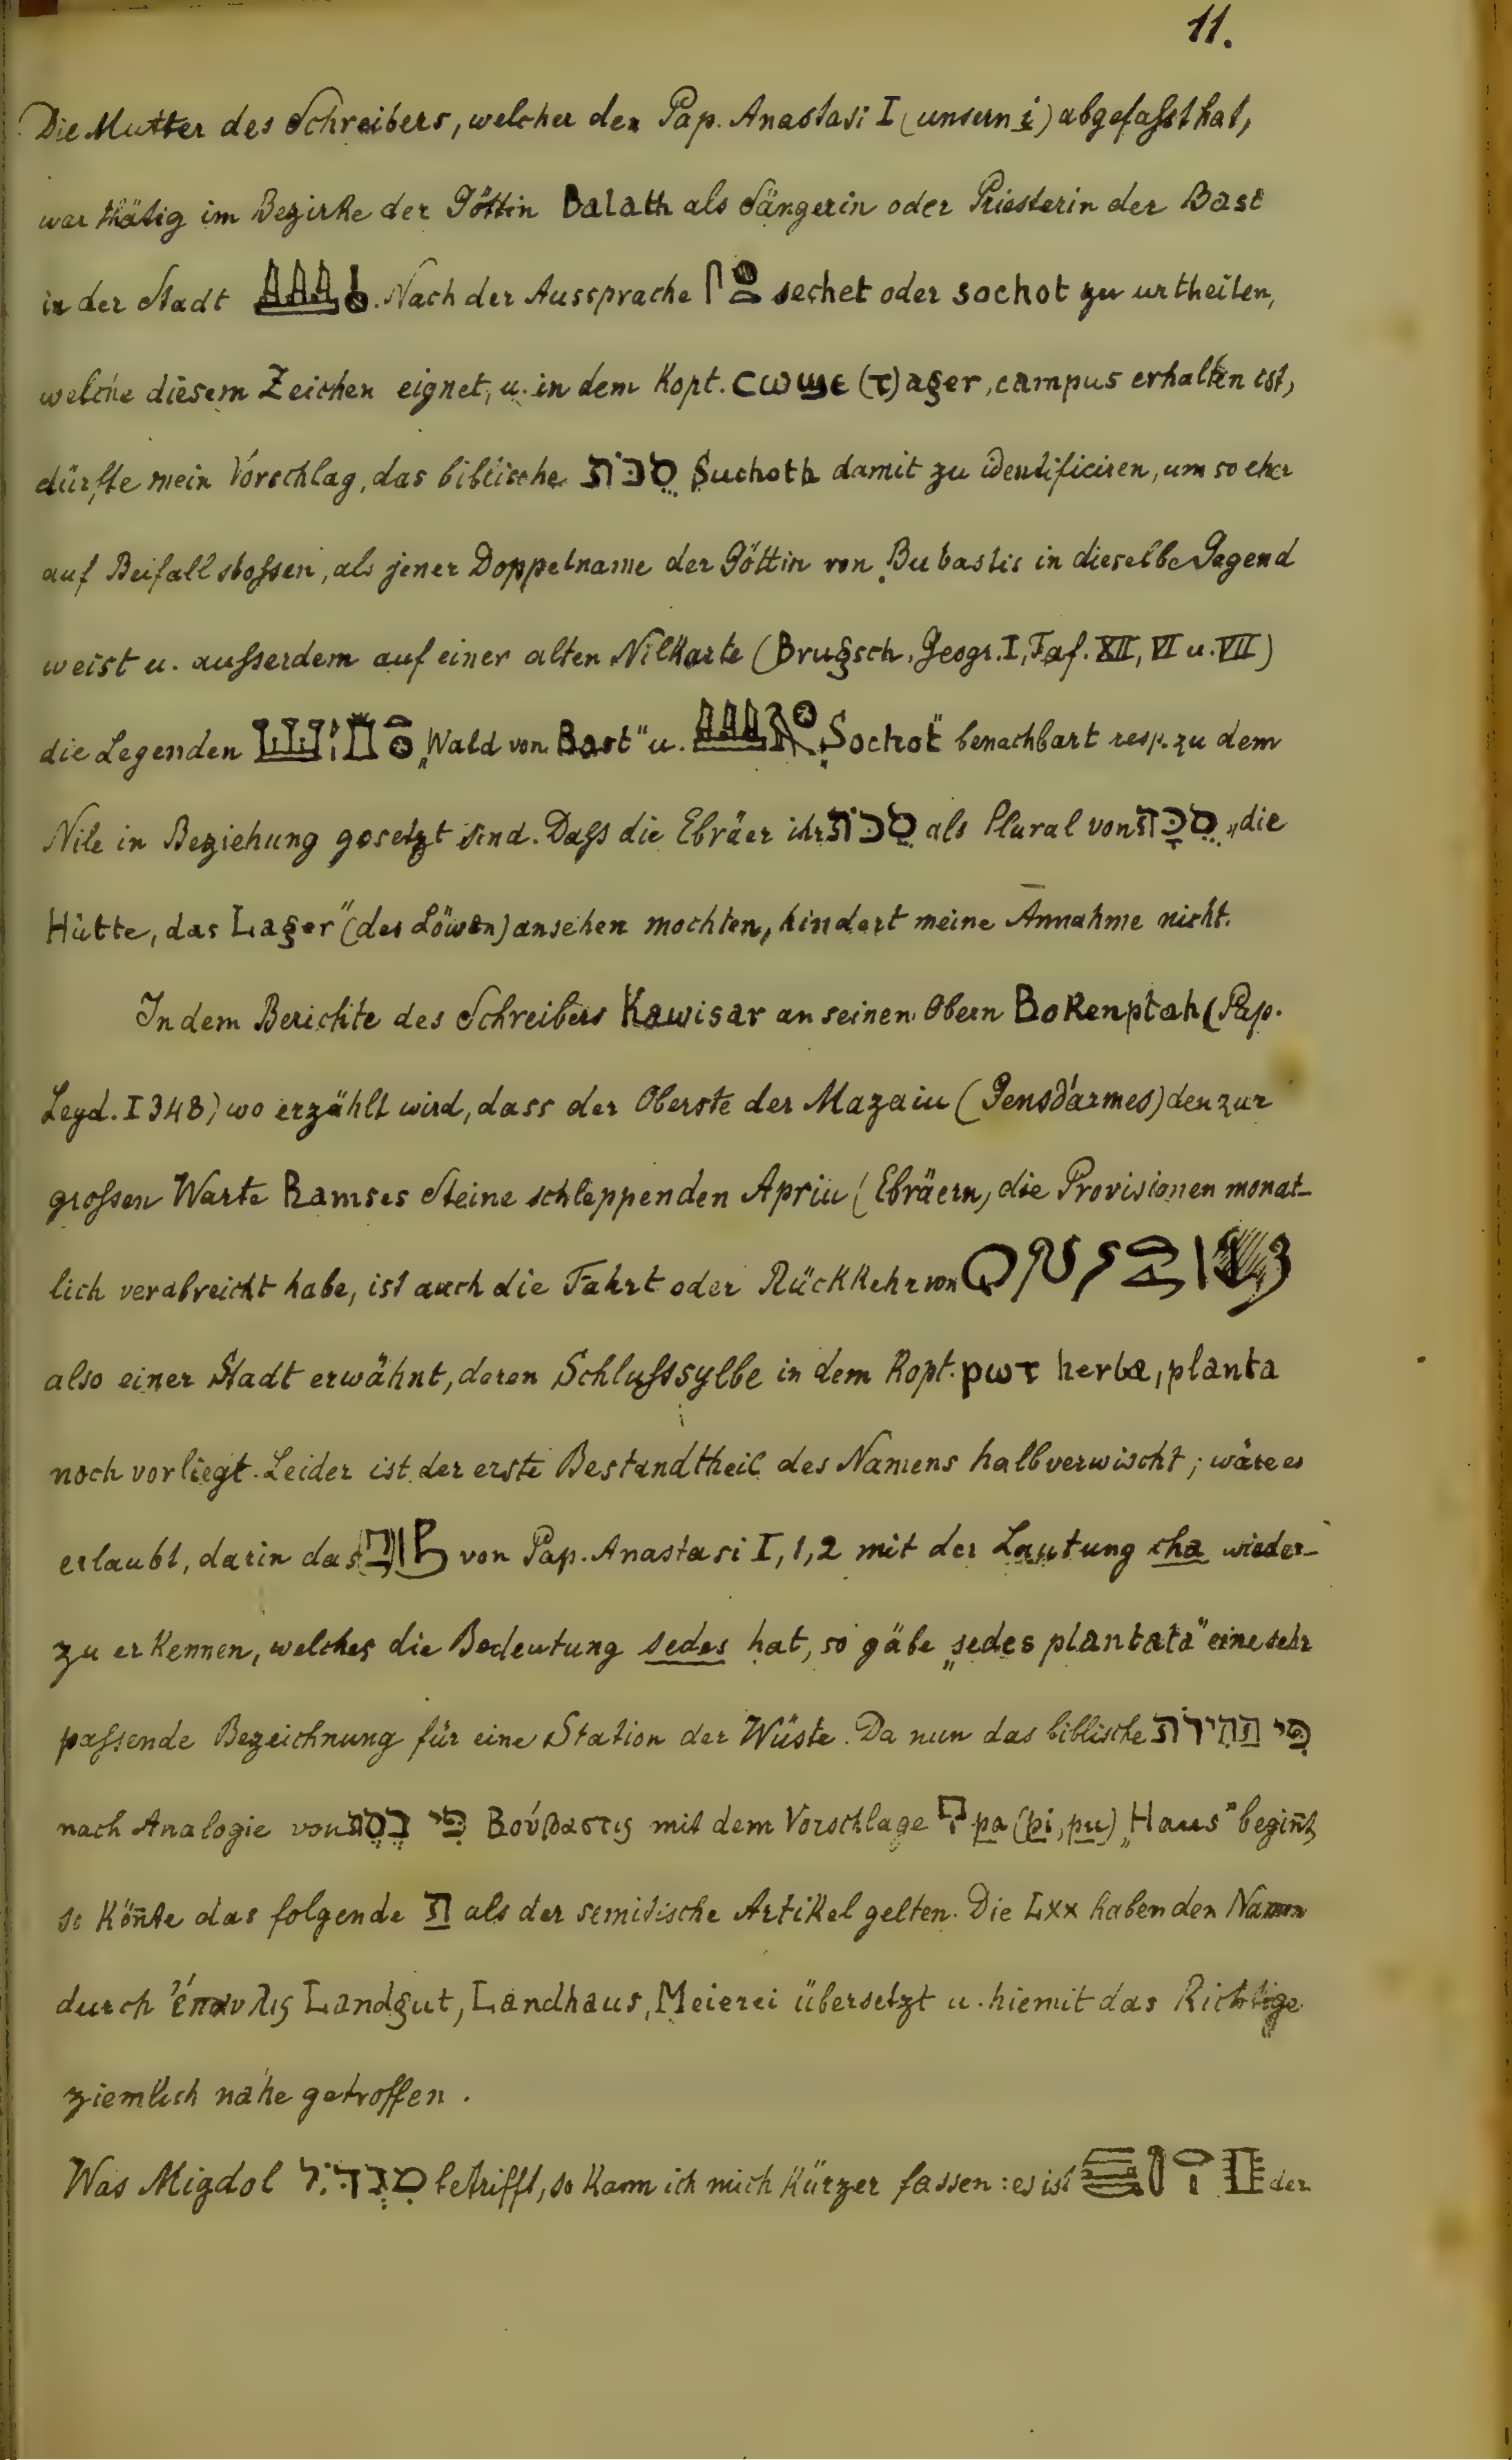 11.
Die Mutter des Schreibers, welcher den Pap. Anastasi I (unsern i) abgefaßt hat,
war thätig im Bezirke der Göttin Balath als Sängerin oder Priesterin der Bast
in der Stadt . Nach der Aussprache sechet oder sochot zu urtheilen,
welche diesem Zeichen eignet, u. in dem Kopt. ⲥⲱϣⲉ (ⲧ) ager, campus erhalten ist,
dürfte mein Vorschlag, das biblische סֻכּוֹת Suchoth damit zu identificiren, um so eher
auf Beifall stoßen, als jener Doppelname der Göttin von Bubastis in dieselbe Gegend
weist u. außerdem auf einer alten Nilkarte (Brugsch, Geogr. I, Taf. XII, VI u. VII)
die Legenden „Wald von Bast" u. „Sochot" benachbart resp. zu dem
Nile in Beziehung gesetzt sind. Daß die Ebräer ihr סֻכּוֹת als Plural von סֻכָּה „die
Hütte, das Lager" (des Löwen) ansehen mochten, hindert meine Annahme nicht.
In dem Berichte des Schreibers Kawisar an seinen Obern Bokenptah (Pap.
Leyd. I 348) wo erzählt wird, dass der Oberste der Mazaiu (Gensd'armes) den zur
großen Warte Ramses Steine schleppenden Apriu (Ebräern, die Provisionen monat-
lich verabreicht habe, ist auch die Fahrt oder Rückkehr von
also einer Stadt erwähnt, deren Schlußsylbe in dem Kopt. ⲣⲱⲧ herba, planta
noch vorliegt. Leider ist der erste Bestandtheil des Namens halbverwischt; wäre es
erlaubt, darin das von Pap. Anastasi I, 1, 2 mit der Lautung cha wieder-
zu erkennen, welches die Bedeutung sedes hat, so gäbe „sedes plantata" eine sehr
paßende Bezeichnung für eine Station der Wüste. Da nun das biblische פִּי הַחִירֹת
nach Analogie von פִּי בֶסֶת Βούβαστις mit dem Vorschlage pa (pi, pu) „Haus" begin̄t,
so kön̄te das folgende הַ als der semitische Artikel gelten. Die LXX haben den Namen
durch ἔπαυλις Landgut, Landhaus, Meierei übersetzt u. hiemit das Richtige
ziemlich nahe getroffen.
Was Migdol מִגְדֹּל betrifft, so kann ich mich kürzer fassen: es ist der